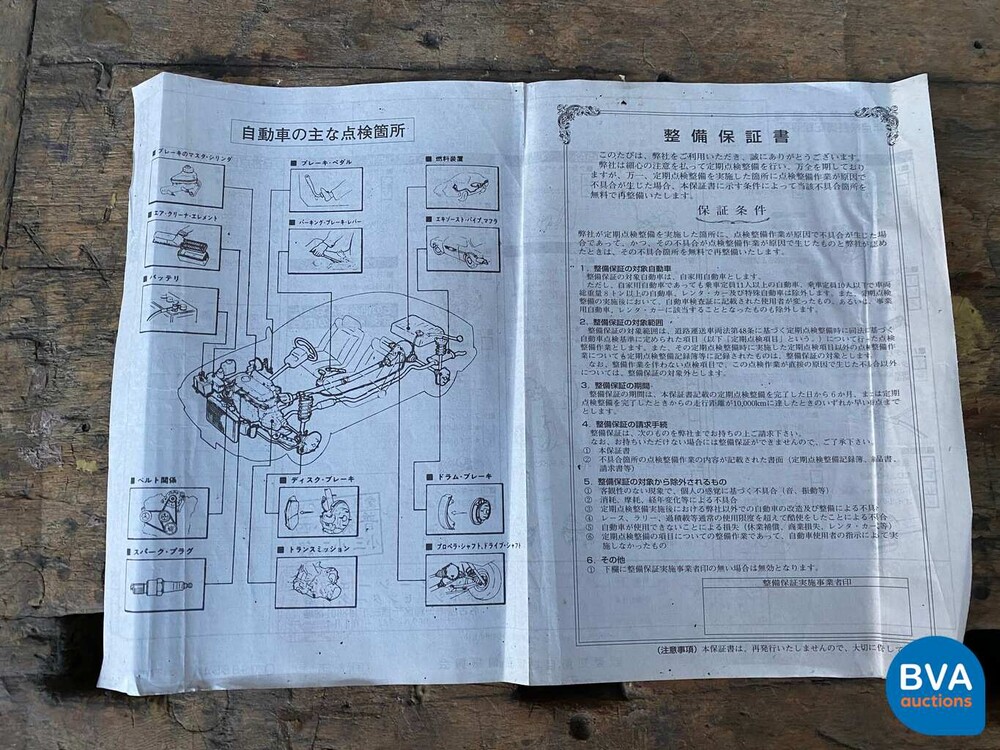 自動車の主な点検箇所
■ ブレーキのマスタ・シリンダ
■ ブレーキ・ペダル
■ 燃料装置
■ エア・クリーナ・エレメント
■ パーキング・ブレーキ・レバー
■ エキゾースト・パイプ、マフラ
■ バッテリ
■ ベルト関係
■ ディスク・ブレーキ
■ ドラム・ブレーキ
■ スパーク・プラグ
■ トランスミッション
■ プロペラ・シャフト、ドライブ・シャフト
整備保証書
このたびは、弊社をご利用いただき、誠にありがとうございます。
弊社は細心の注意を払って定期点検整備を行い、万全を期しており
ますが、万一、定期点検整備を実施した箇所に点検整備作業が原因で
不具合が生じた場合、本保証書に示す条件によって当該不具合箇所を
無料で再整備いたします。
保証条件
弊社が定期点検整備を実施した箇所に、点検整備作業が原因で不具合が生じた場
合であって、かつ、その不具合が点検整備作業が原因で生じたものと弊社が認め
たときは、その不具合箇所を無料で再整備いたします。
1. 整備保証の対象自動車
整備保証の対象自動車は、自家用自動車とします。
ただし、自家用自動車であっても乗車定員11人以上の自動車、乗車定員10人以下で車両
総重量8トン以上の自動車、レンタ・カー及び特殊自動車は除外します。また、定期点検
整備の実施後において、自動車検査証に記載された使用者が変ったもの、あるいは、事業
用自動車、レンタ・カーに該当することとなったものも除外します。
2. 整備保証の対象範囲
整備保証の対象範囲は、道路運送車両法第48条に基づく定期点検整備時に同法に基づく
自動車点検基準に定められた項目（以下「定期点検項目」という。）について行った点検
整備作業とします。また、その定期点検整備時に実施した定期点検項目以外の点検整備作
業についても定期点検整備記録簿等に記録されたものは、整備保証の対象とします。
なお、整備作業を伴わない点検項目で、この点検作業が直接の原因で生じた不具合以外
については、整備保証の対象外とします。
3. 整備保証の期間
整備保証の期間は、本保証書記載の定期点検整備を完了した日から6か月、または定期
点検整備を完了したときからの走行距離が10,000kmに達したときのいずれか早い時点まで
とします。
4. 整備保証の請求手続
整備保証は、次のものを弊社までお持ちの上ご請求下さい。
なお、お持ちいただけない場合には整備保証ができませんので、ご了承下さい。
① 本保証書
② 不具合箇所の点検整備作業の内容が記載された書面（定期点検整備記録簿、納品書、
請求書等）
5. 整備保証の対象から除外されるもの
① 客観性のない現象で、個人の感覚に基づく不具合（音、振動等）
② 消耗、摩耗、経年変化等による不具合
③ 定期点検整備実施後における弊社以外での自動車の改造及び整備による不具合
④ レース、ラリー、過積載等通常の使用限度を超えて酷使をしたことによる不具合
⑤ 自動車が使用できないことによる損失（休業補償、商業損失、レンタ・カー等）
⑥ 定期点検整備の項目についての整備作業であって、自動車使用者の指示によって実
施しなかったもの
6. その他
① 下欄に整備保証実施事業者印の無い場合は無効となります。
整備保証実施事業者印
（注意事項）本保証書は、再発行いたしませんので、大切に保して
BVA
auctions